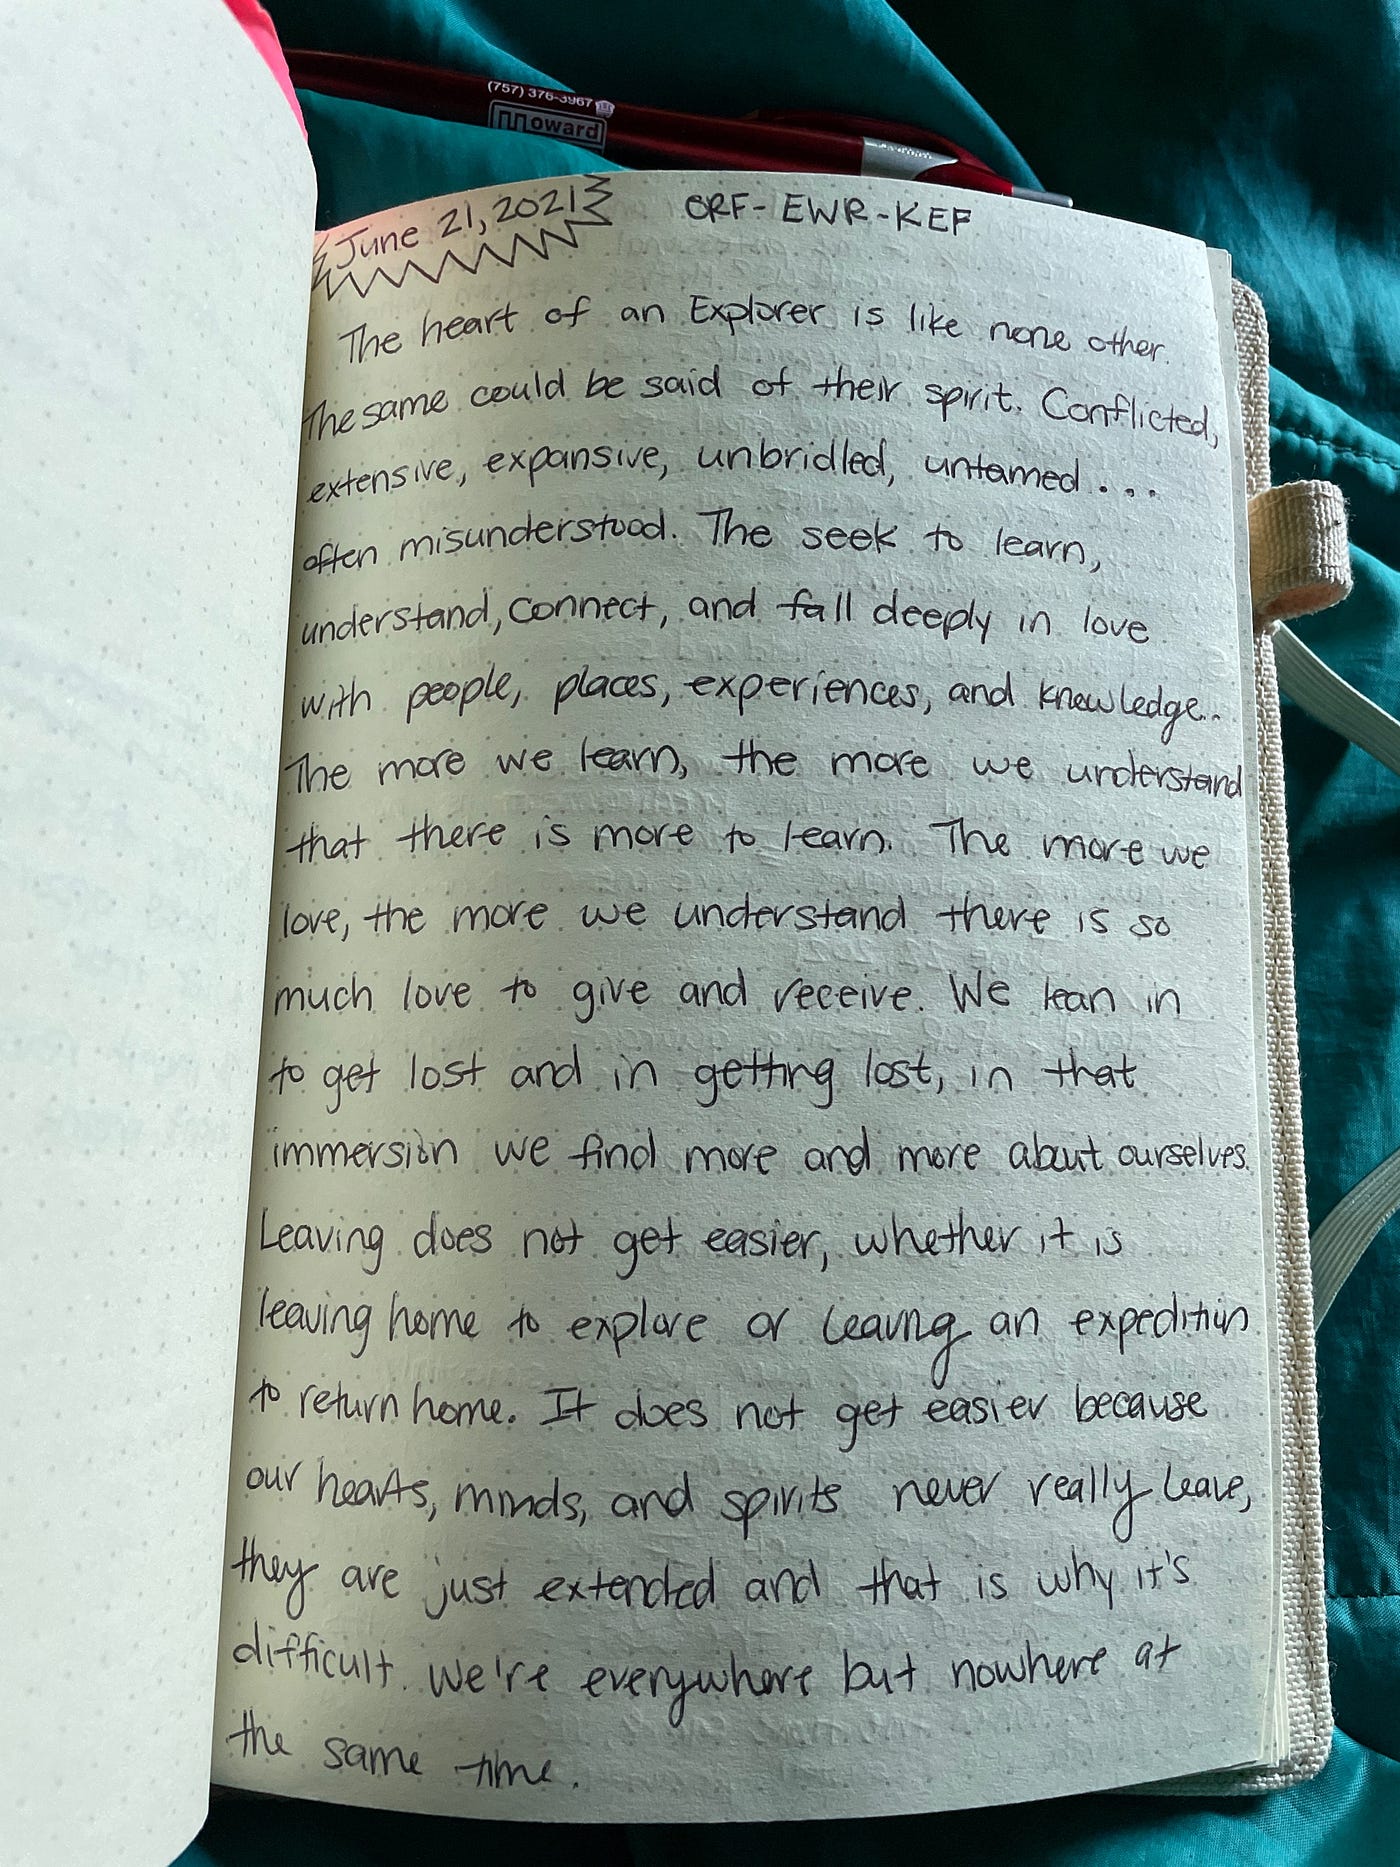 (757) 376-3967
Howard
June 21, 2021 ORF-EWR-KEF
The heart of an Explorer is like none other.
The same could be said of their spirit. Conflicted,
extensive, expansive, unbridled, untamed...
often misunderstood. The seek to learn,
understand, connect, and fall deeply in love
with people, places, experiences, and knowledge..
The more we learn, the more we understand
that there is more to learn. The more we
love, the more we understand there is so
much love to give and receive. We lean in
to get lost and in getting lost, in that
immersion we find more and more about ourselves.
Leaving does not get easier, whether it is
leaving home to explore or leaving an expedition
to return home. It does not get easier because
our hearts, minds, and spirits never really leave,
they are just extended and that is why it's
difficult. We're everywhere but nowhere at
the same time.